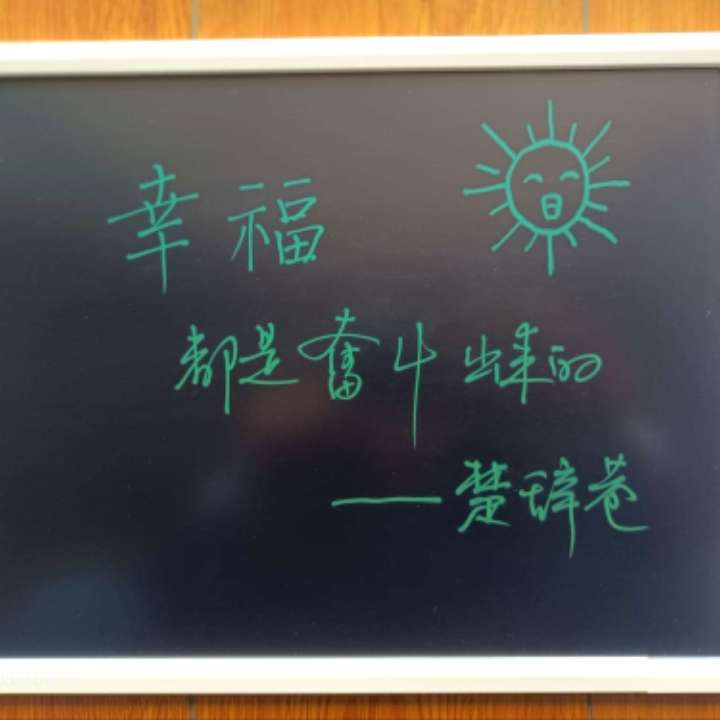 幸福
都是奋斗出来的
——楚辞巷